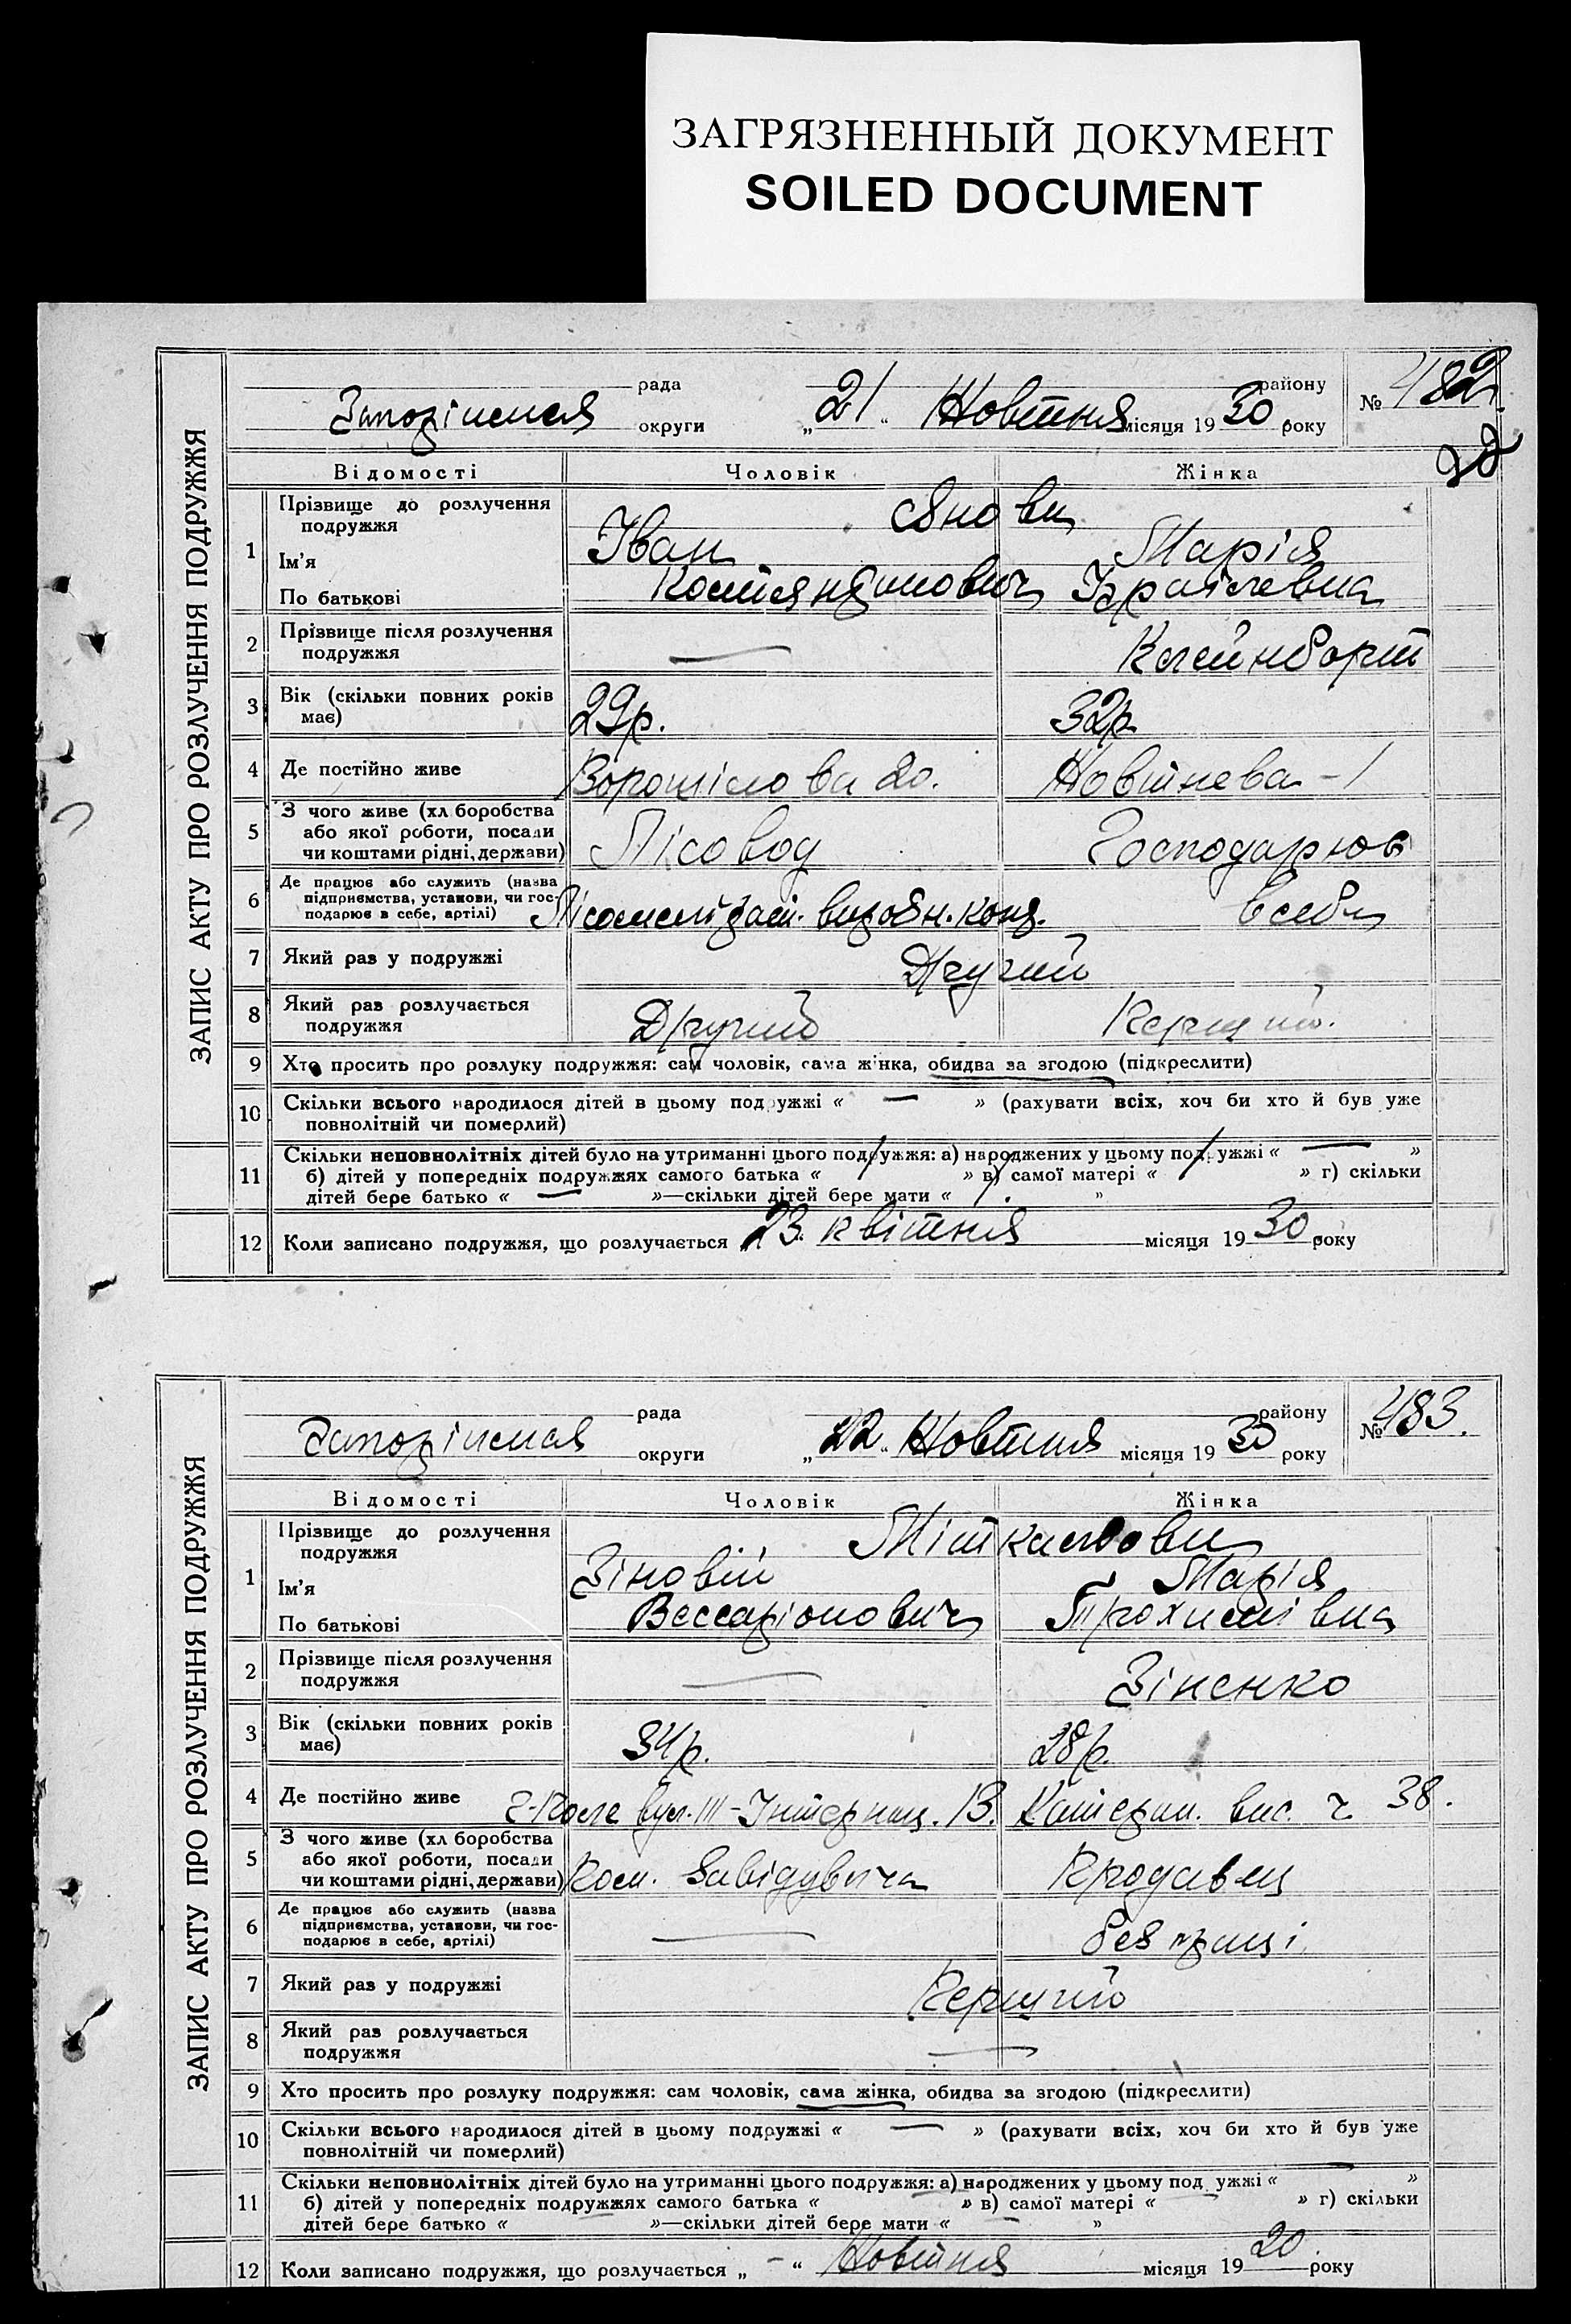 ЗАГРЯЗНЕННЫЙ ДОКУМЕНТ
SOILED DOCUMENT
ЗАПИС АКТУ ПРО РОЗЛУЧЕННЯ ПОДРУЖЖЯ
рада району
округи „21“ Жовтня місяця 1930 року № 482
Відомості Чоловік Жінка
1 Прізвище до розлучення подружжя Янови
Ім'я Іван Марія
По батькові Костянтинович
2 Прізвище після розлучення подружжя — Клейнборт
3 Вік (скільки повних років має) 29р. 32р
4 Де постійно живе Ворошілова 20. Жовтнева-1
5 З чого живе (хліборобства
або якої роботи, посади
чи коштами рідні, держави) Лісовод Господарює
6 Де працює або служить (назва
підприємства, установи, чи гос-
подарює в себе, артілі) в себе
7 Який раз у подружжі Другий
8 Який раз розлучається
подружжя Другий Перший.
9 Хто просить про розлуку подружжя: сам чоловік, сама жінка, обидва за згодою (підкреслити)
10 Скільки всього народилося дітей в цьому подружжі « — » (рахувати всіх, хоч би хто й був уже
повнолітній чи померлий)
11 Скільки неповнолітніх дітей було на утриманні цього подружжя: а) народжених у цьому подружжі « — »
б) дітей у попередніх подружжях самого батька « / » в) самої матері « / » г) скільки
дітей бере батько « — »—скільки дітей бере мати « / »
12 Коли записано подружжя, що розлучається „23. квітня місяця 1930 року
ЗАПИС АКТУ ПРО РОЗЛУЧЕННЯ ПОДРУЖЖЯ
рада району
округи „22“ Жовтня місяця 1930 року № 483.
Відомості Чоловік Жінка
1 Прізвище до розлучення
подружжя
Ім'я Зіновій Марія
По батькові Вессаріонович Трохимівна
2 Прізвище після розлучення
подружжя — Зіненко
3 Вік (скільки повних років
має) 34р. 28р.
4 Де постійно живе вул. III-Інтернац. 13. Катерин. вис. ч. 38.
5 З чого живе (хліборобства
або якої роботи, посади
чи коштами рідні, держави) Пом. Завідувача Продавец
6 Де працює або служить (назва
підприємства, установи, чи гос-
подарює в себе, артілі) — без праці
7 Який раз у подружжі Перший
8 Який раз розлучається
подружжя —
9 Хто просить про розлуку подружжя: сам чоловік, сама жінка, обидва за згодою (підкреслити)
10 Скільки всього народилося дітей в цьому подружжі « — » (рахувати всіх, хоч би хто й був уже
повнолітній чи померлий)
11 Скільки неповнолітніх дітей було на утриманні цього подружжя: а) народжених у цьому подружжі « — »
б) дітей у попередніх подружжях самого батька « » в) самої матері « » г) скільки
дітей бере батько « »—скільки дітей бере мати « »
12 Коли записано подружжя, що розлучається „ - “ Жовтня місяця 1920 року